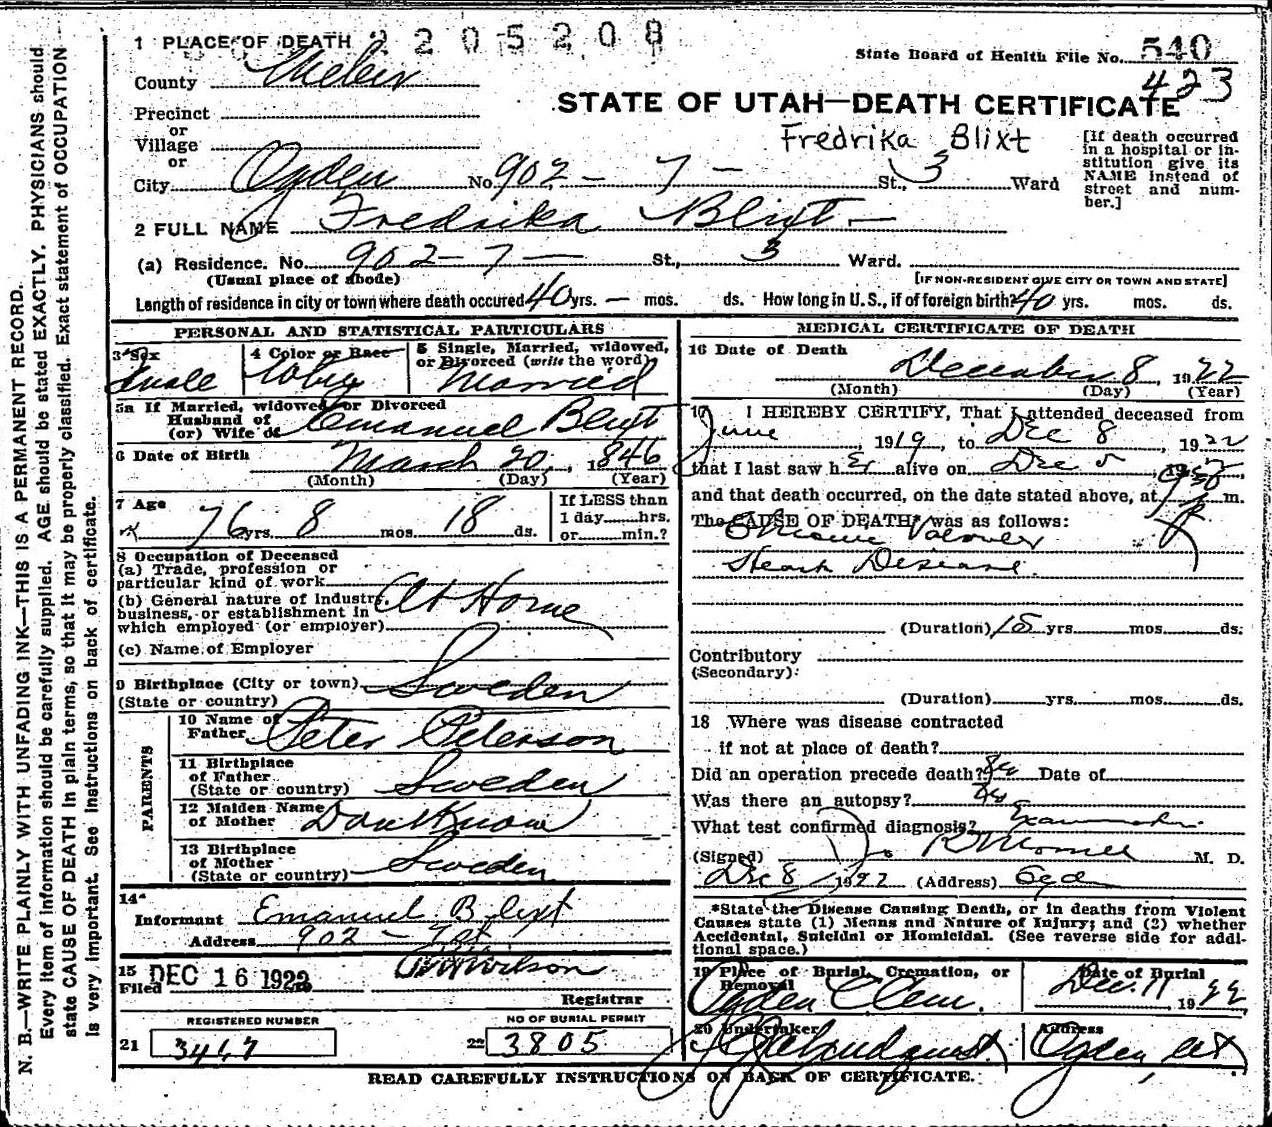 1 PLACE OF DEATH 2205208
State Board of Health File No. 540
423
County Weber
STATE OF UTAH—DEATH CERTIFICATE
Precinct
or
Village
or
Fredrika Blixt
[If death occurred in a hospital or institution give its NAME instead of street and number.]
City Ogden No. 902 - 7 - St., 3 Ward
2 FULL NAME Fredrika Blixt
(a) Residence. No. 902 - 7 - St., 3 Ward.
(Usual place of abode) [IF NON-RESIDENT GIVE CITY OR TOWN AND STATE]
Length of residence in city or town where death occured 40 yrs. — mos. ds. How long in U. S., if of foreign birth? 40 yrs. mos. ds.
PERSONAL AND STATISTICAL PARTICULARS
3 Sex
4 Color or Race
5 Single, Married, widowed, or Divorced (write the word)
Married
5a If Married, widowed or Divorced
Husband of
(or) Wife of Emanuel Blixt
6 Date of Birth March 20, 1846
(Month) (Day) (Year)
7 Age 76 yrs. 8 mos. 18 ds.
If LESS than
1 day......hrs.
or......min.?
8 Occupation of Deceased
(a) Trade, profession or
particular kind of work
(b) General nature of Industry,
business, or establishment in
which employed (or employer)
At Home
(c) Name of Employer
9 Birthplace (City or town)
(State or country) Sweden
PARENTS
10 Name of
Father Peter Peterson
11 Birthplace
of Father
(State or country) Sweden
12 Maiden Name
of Mother Dont Know
13 Birthplace
of Mother
(State or country) Sweden
14
Informant Emanuel Blixt
Address 902 - 7 st.
15
Filed DEC 16 1922 Wilson
Registrar
REGISTERED NUMBER
21
NO OF BURIAL PERMIT
22 3805
MEDICAL CERTIFICATE OF DEATH
16 Date of Death
December 8, 1922
(Month) (Day) (Year)
17 I HEREBY CERTIFY, That I attended deceased from
June, 1919, to Dec 8 1922
that I last saw her alive on Dec 5
and that death occurred, on the date stated above, at m.
The CAUSE OF DEATH* was as follows:
Chronic Valvular
Heart Disease.
(Duration) 15 yrs. mos. ds.
Contributory
(Secondary):
(Duration) yrs. mos. ds.
18 Where was disease contracted
if not at place of death?
Did an operation precede death? Date of
Was there an autopsy?
What test confirmed diagnosis? Examination
(Signed) M. D.
Dec 8 1922 (Address)
*State the Disease Causing Death, or in deaths from Violent
Causes state (1) Means and Nature of Injury; and (2) whether
Accidental, Suicidal or Homicidal. (See reverse side for additional space.)
19 Place of Burial, Cremation, or
Removal
Ogden C. Cem.
Date of Burial
Dec. 11 1922
20 Undertaker
Address
Ogden, Ut
READ CAREFULLY INSTRUCTIONS ON BACK OF CERTIFICATE.
N. B.—WRITE PLAINLY WITH UNFADING INK—THIS IS A PERMANENT RECORD.
Every item of information should be carefully supplied. AGE should be stated EXACTLY. PHYSICIANS should
state CAUSE OF DEATH in plain terms, so that it may be properly classified. Exact statement of OCCUPATION
is very important. See instructions on back of certificate.